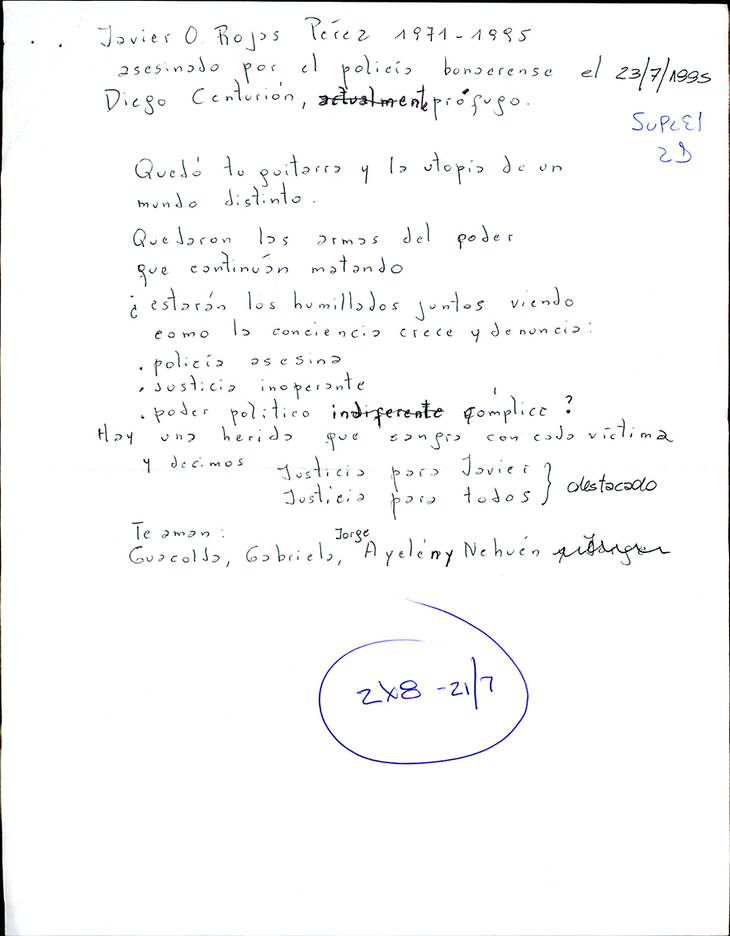 Javier O. Rojas Pérez 1971-1995
asesinado por el policía bonaerense el 23/7/1995
Diego Centurión, actualmente prófugo.
SUPLE1
2D
Quedó tu guitarra y la utopia de un
mundo distinto.
Quedaron las armas del poder
que continuán matando
¿estarán los humillados juntos viendo
como la conciencia crece y denuncia:
. policía asesina
. Justicia inoperante
. poder político indiferente cómplice?
Hay una herida que sangra con cada víctima
y decimos Justicia para Javier
Justicia para todos } destacado
Te aman:
Guacolda, Gabriela, Jorge Ayelén y Nehuén
2x8 - 21/7